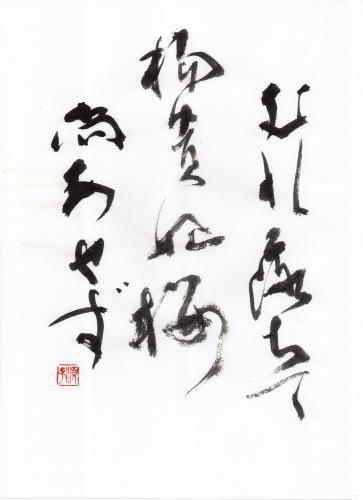 むれ落ちて
楊貴妃桜
尚あせず